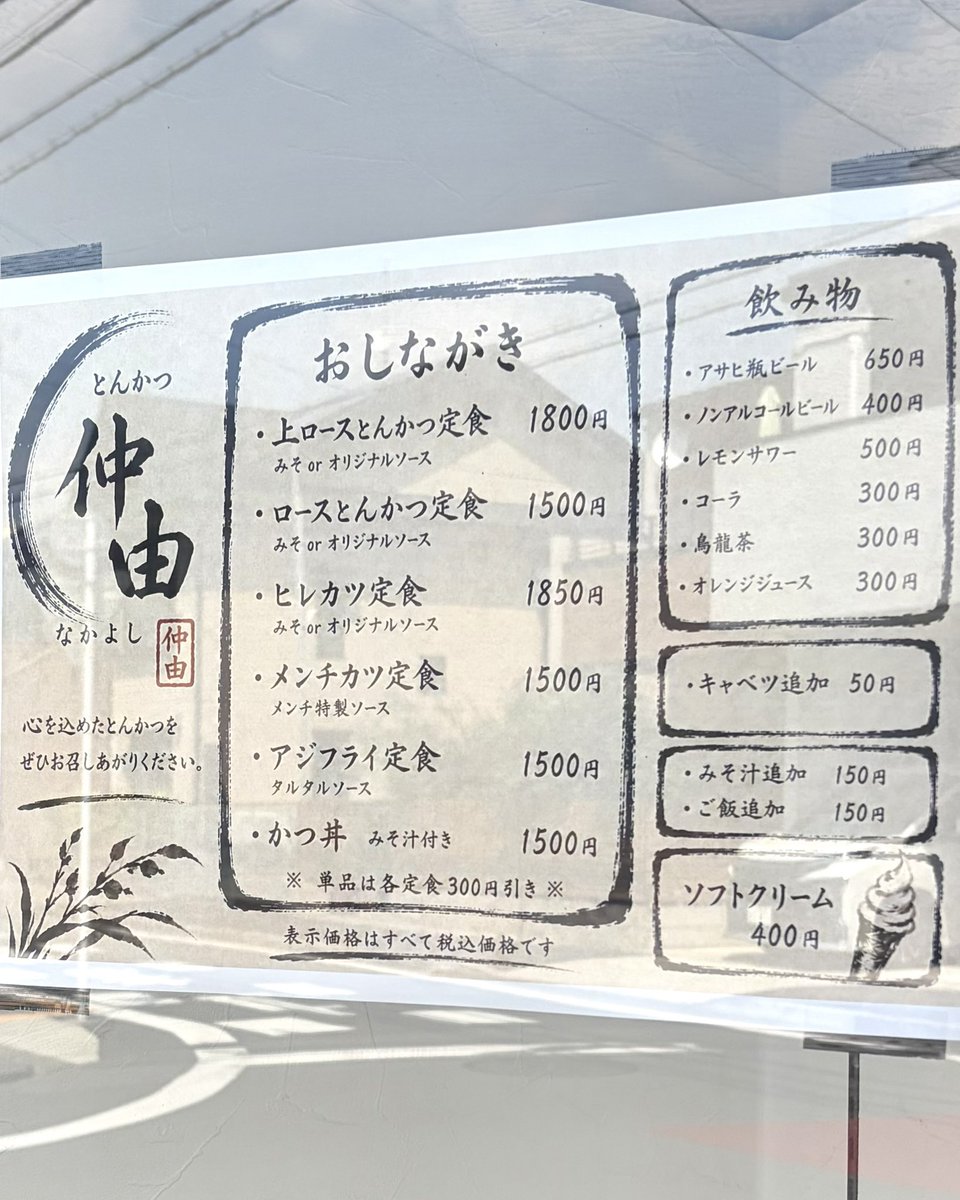 とんかつ
仲由
なかよし
仲由
心を込めたとんかつを
ぜひお召しあがりください。
おしながき
・上ロースとんかつ定食 1800円
みそ or オリジナルソース
・ロースとんかつ定食 1500円
みそ or オリジナルソース
・ヒレカツ定食 1850円
みそ or オリジナルソース
・メンチカツ定食 1500円
メンチ特製ソース
・アジフライ定食 1500円
タルタルソース
・かつ丼 みそ汁付き 1500円
※ 単品は各定食300円引き ※
表示価格はすべて税込価格です
飲み物
・アサヒ瓶ビール 650円
・ノンアルコールビール 400円
・レモンサワー 500円
・コーラ 300円
・烏龍茶 300円
・オレンジジュース 300円
・キャベツ追加 50円
・みそ汁追加 150円
・ご飯追加 150円
ソフトクリーム
400円